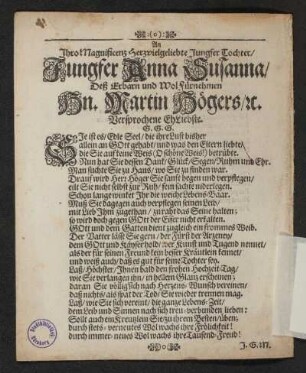 :(o):
An
Ihro Magnificenz Herzvielgeliebte Jungfer Tochter/
Jungfer Anna Susanna/
Deß Erbarn und Wol Fürnehmen
Hn. Martin Högers/ꝛc.
Versprochene EhLiebste.
S. G. G.
Sie ist es/ Edle Seel/ die ihre Lust bißher
allein an Gott gehabt/ und was den Eltern liebte/
die Sie auf keine Weis (O schöne Weis!) betrübte.
Nun hat Sie dessen Danck/ Glück/ Segen/ Ruhm und Ehr.
Man suchte Sie zu Haus/ wo Sie zu finden war.
Drauf wird Herr Höger Sie sanfft hegen und verpflegen/
eilt Sie nicht selbst zur Ruh/ sein sachte niderlegen.
Schon lange wintet Ihr die weiche Lebens-Baar.
Muß Sie dagegen auch verpflegen seinen Leib/
mit Lieb Ihm zugethan/ zu raht das Seine halten:
so wird doch gegen GOtt der Eifer nicht erkalten.
GOtt und dem Gatten dient zugleich ein frommes Weib.
Der Vatter lässt Sie gern/ der Fürst der Arzeney/
dem GOtt und Käyser hold/ der Kunst und Tugend nennet/
als der für seinen Freund kein besser Kräutlein kennet/
und weiß auch/ daß es gut für seine Tochter sey.
Laß/ Höchster/ Ihnen bald den frohen Hochzeit-Tag/
wie Sie verlangen ihn/ in hellem Glanz erscheinen:
daran Sie völlig sich nach Herzens-Wunsch vereinen/
daß nichts/ als spat der Tod/ Sie wieder trennen mag.
Laß/ wie Sie sich vereint/ die ganze Lebens-Zeit/
dem Leib und Sinnen nach sich treu-verbunden lieben:
Sollt auch ein Creuzlein Sie zu ihrem Besten üben:
durch stets-verneutes Wol wachs ihre Frölichkeit!
durch immer-neues Wol wachs ihre Tausend-Freud!
J. G. M.